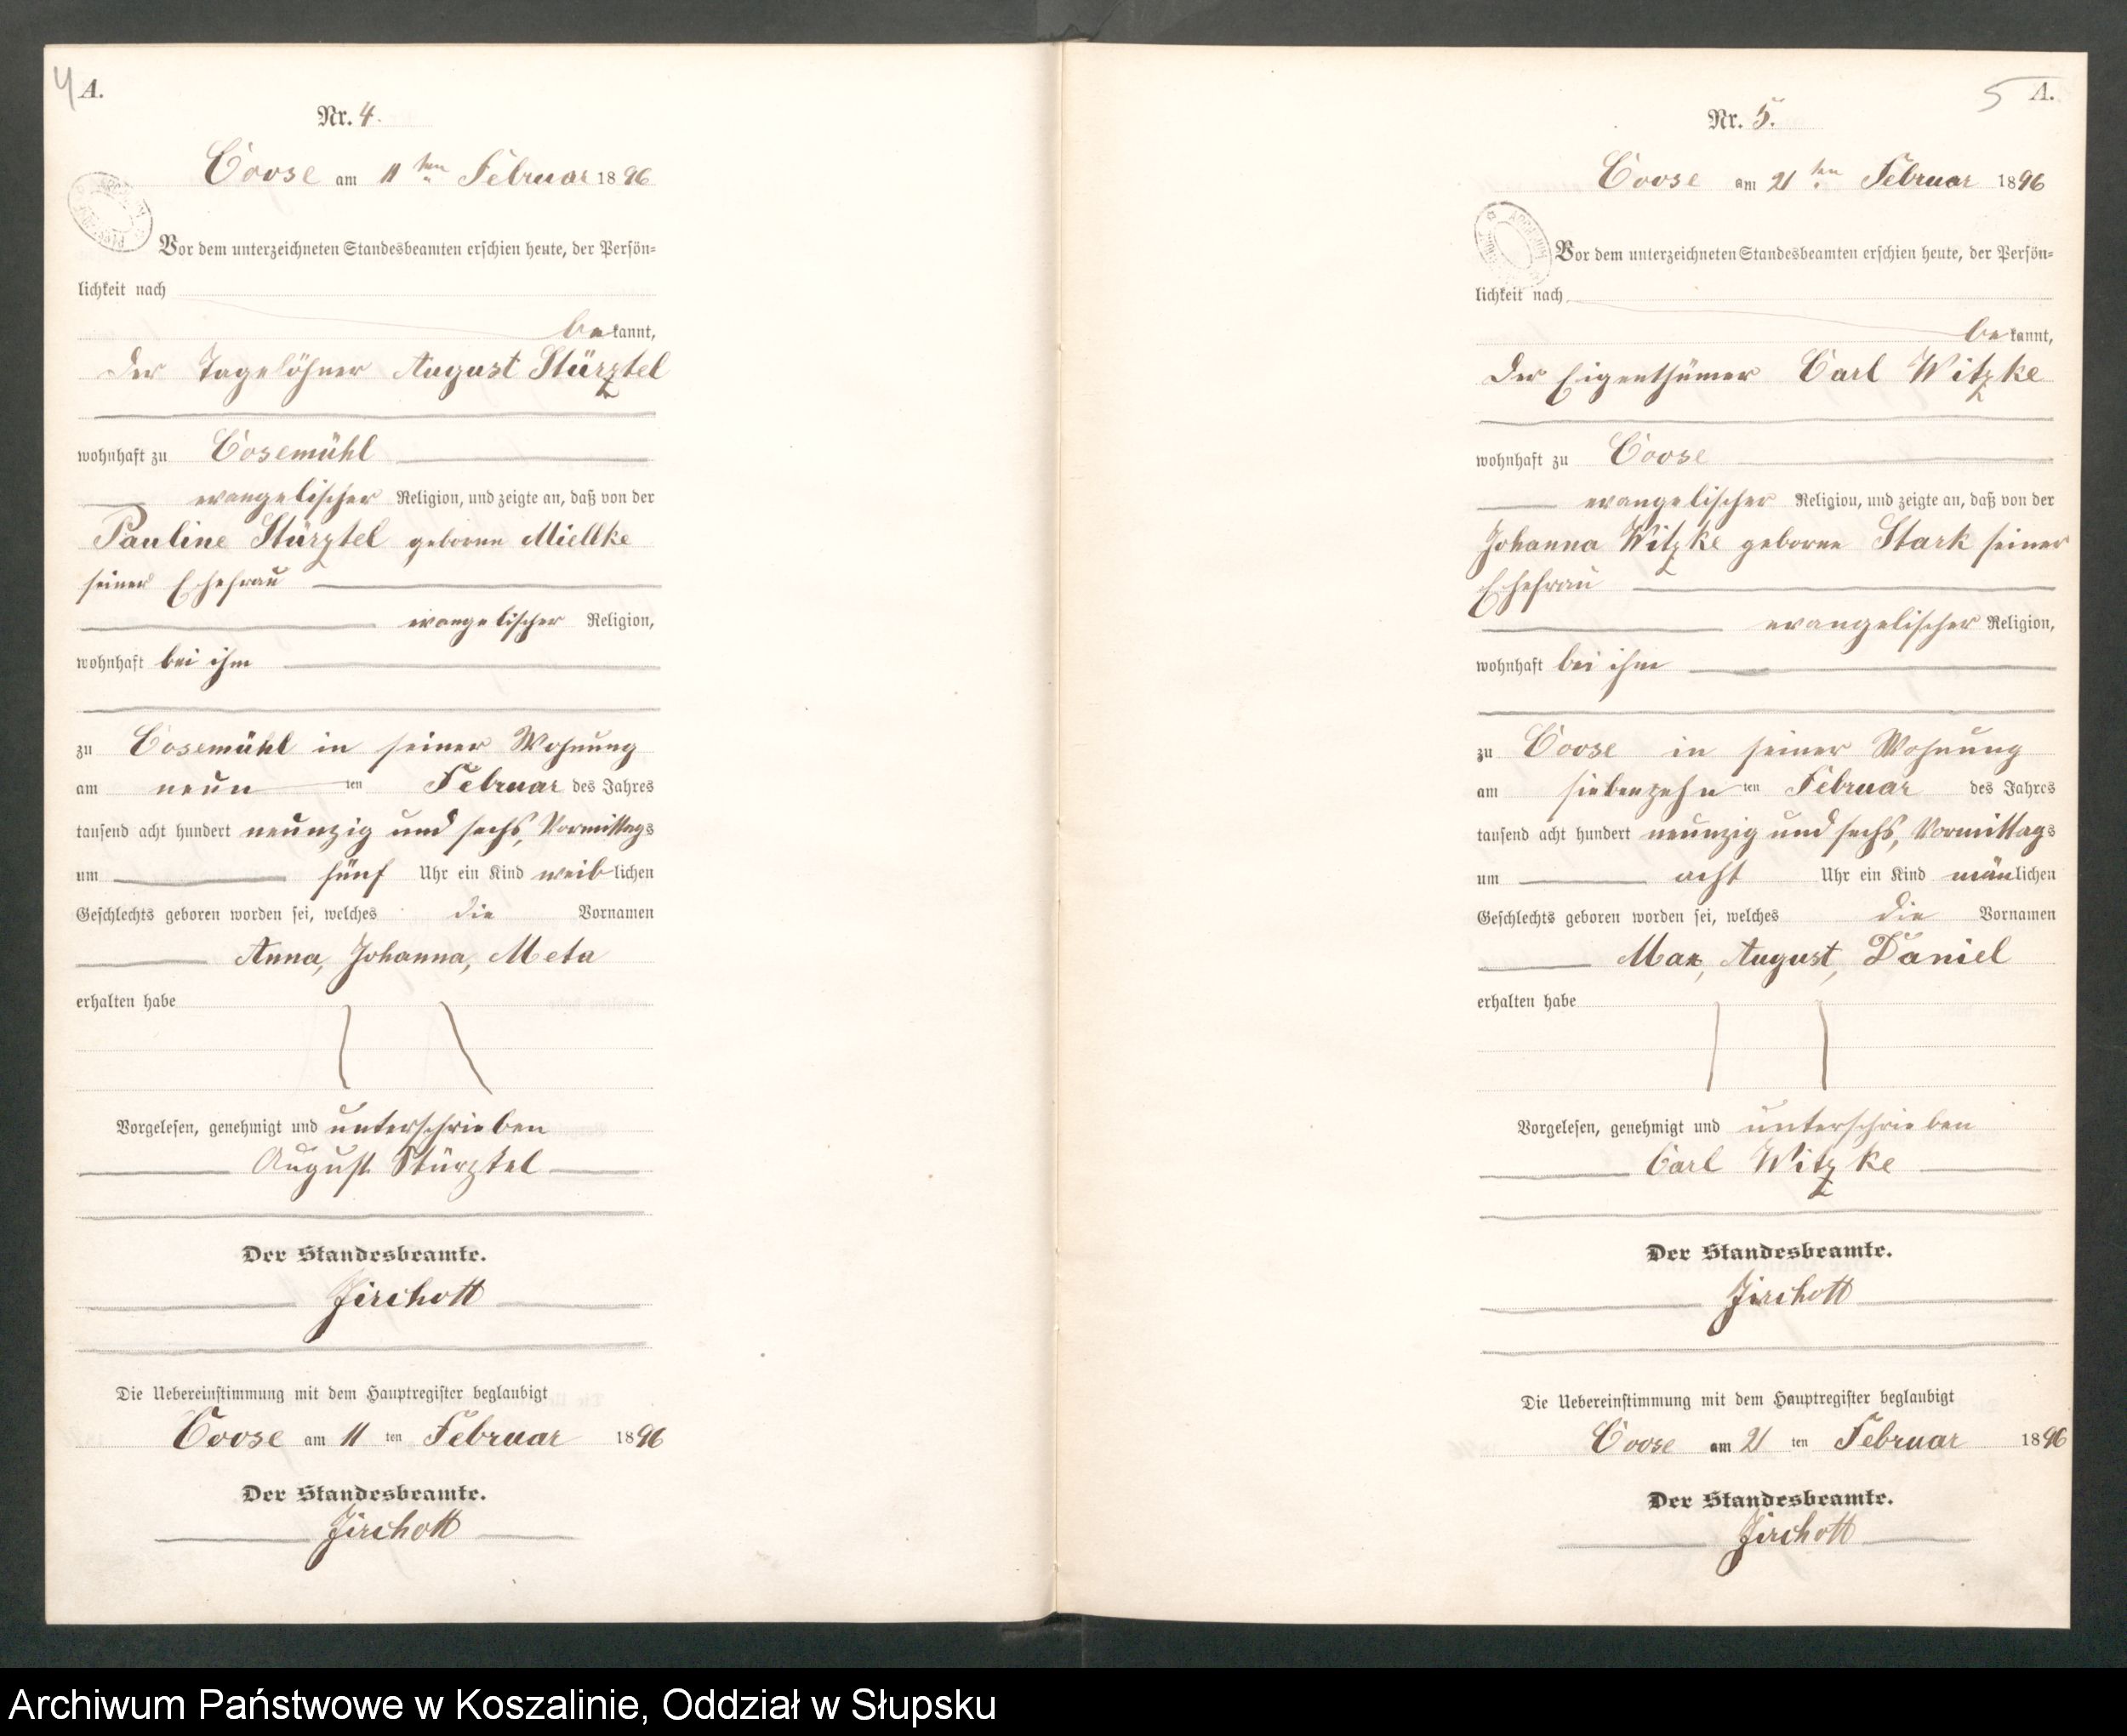 4 A.
Nr. 4.
Coose am 11 ten Februar 1896
Vor dem unterzeichneten Standesbeamten erschien heute, der Persön=
lichkeit nach
bekannt,
der Tagelöhner August Stürztel
wohnhaft zu Cosemühl
evangelischer Religion, und zeigte an, daß von der
Pauline Stürztel geborne Miellke
seiner Ehefrau
evangelischer Religion,
wohnhaft bei ihm
zu Cosemühl in seiner Wohnung
am neun ten Februar des Jahres
tausend acht hundert neunzig und sechs, Vormittags
um fünf Uhr ein Kind weiblichen
Geschlechts geboren worden sei, welches die Vornamen
Anna, Johanna, Meta
erhalten habe
Vorgelesen, genehmigt und unterschrieben
August Stürztel
Der Standesbeamte.
Jirchott
Die Uebereinstimmung mit dem Hauptregister beglaubigt
Coose am 11 ten Februar 1896
Der Standesbeamte.
Jirchott
5 A.
Nr. 5.
Coose am 21 ten Februar 1896
Vor dem unterzeichneten Standesbeamten erschien heute, der Persön=
lichkeit nach
bekannt,
der Eigenthümer Carl Witzke
wohnhaft zu Coose
evangelischer Religion, und zeigte an, daß von der
Johanna Witzke geborne Stark seiner
Ehefrau
evangelischer Religion,
wohnhaft bei ihm
zu Coose in seiner Wohnung
am siebenzehn ten Februar des Jahres
tausend acht hundert neunzig und sechs, Vormittags
um acht Uhr ein Kind mänlichen
Geschlechts geboren worden sei, welches die Vornamen
Max, August, Daniel
erhalten habe
Vorgelesen, genehmigt und unterschrieben
Carl Witzke
Der Standesbeamte.
Jirchott
Die Uebereinstimmung mit dem Hauptregister beglaubigt
Coose am 21 ten Februar 1896
Der Standesbeamte.
Jirchott
Archiwum Państwowe w Koszalinie, Oddział w Słupsku